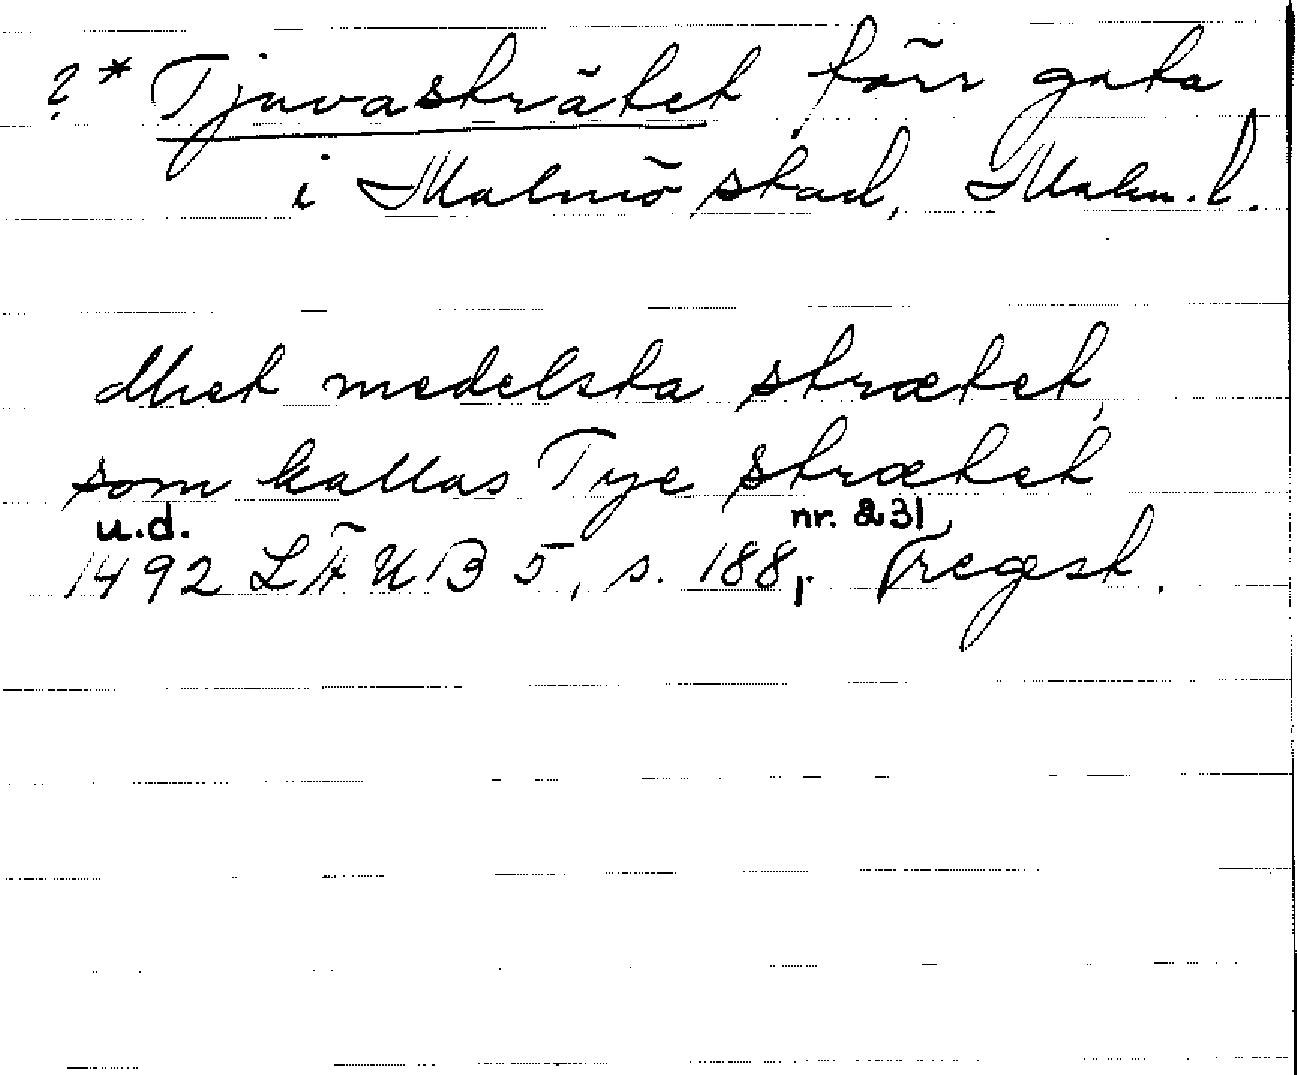 ?* Tjuvasträtet förr gata
i Malmö stad, Malm. l.
dhet medelsta strætet,
som kallas Tye strætet
u.d. nr. 231
1492 LÄUB 5, s. 188, regest.